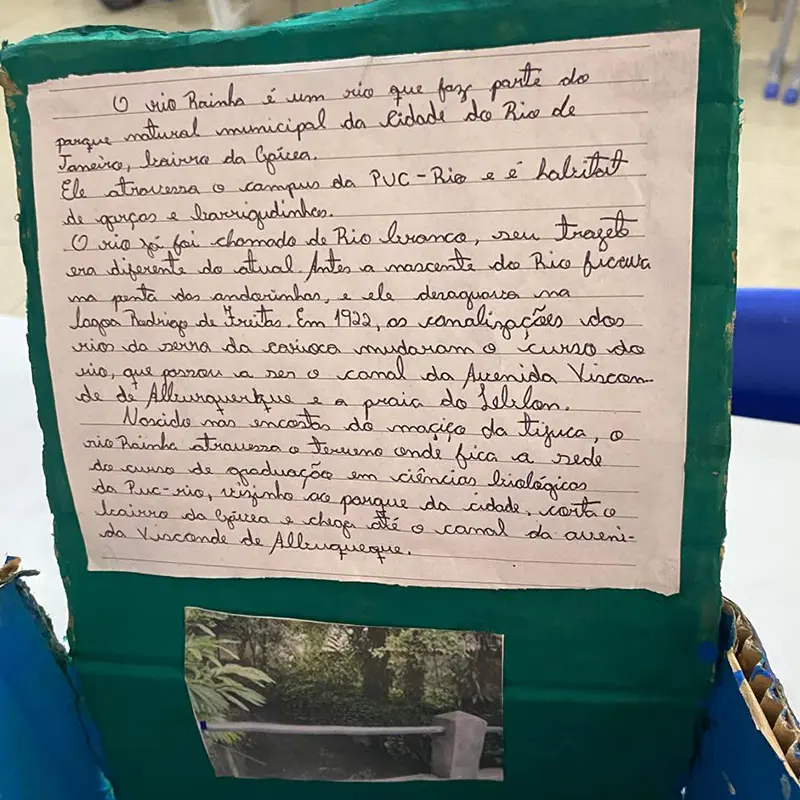 O rio Rainha é um rio que faz parte do
parque natural municipal da cidade do Rio de
Janeiro, bairro da Gávea.
Ele atravessa o campus da PUC-Rio e é habitat
de garças e barrigudinhos.
O rio já foi chamado de Rio branco, seu trajeto
era diferente do atual. Antes a nascente do Rio ficava
na ponta das andorinhas, e ele desaguava na
lagoa Rodrigo de Freitas. Em 1922, as canalizações dos
rios da serra da carioca mudaram o curso do
rio, que passou a ser o canal da Avenida Viscon-
de de Alburquerque e a praia do Leblon.
Nascido nas encostas do maciço da tijuca, o
rio Rainha atravessa o terreno onde fica a sede
do curso de graduação em ciências biológicas
da Puc-rio, vizinho ao parque da cidade, corta o
bairro da Gávea e chega até o canal da aveni-
da Visconde de Albuquerque.